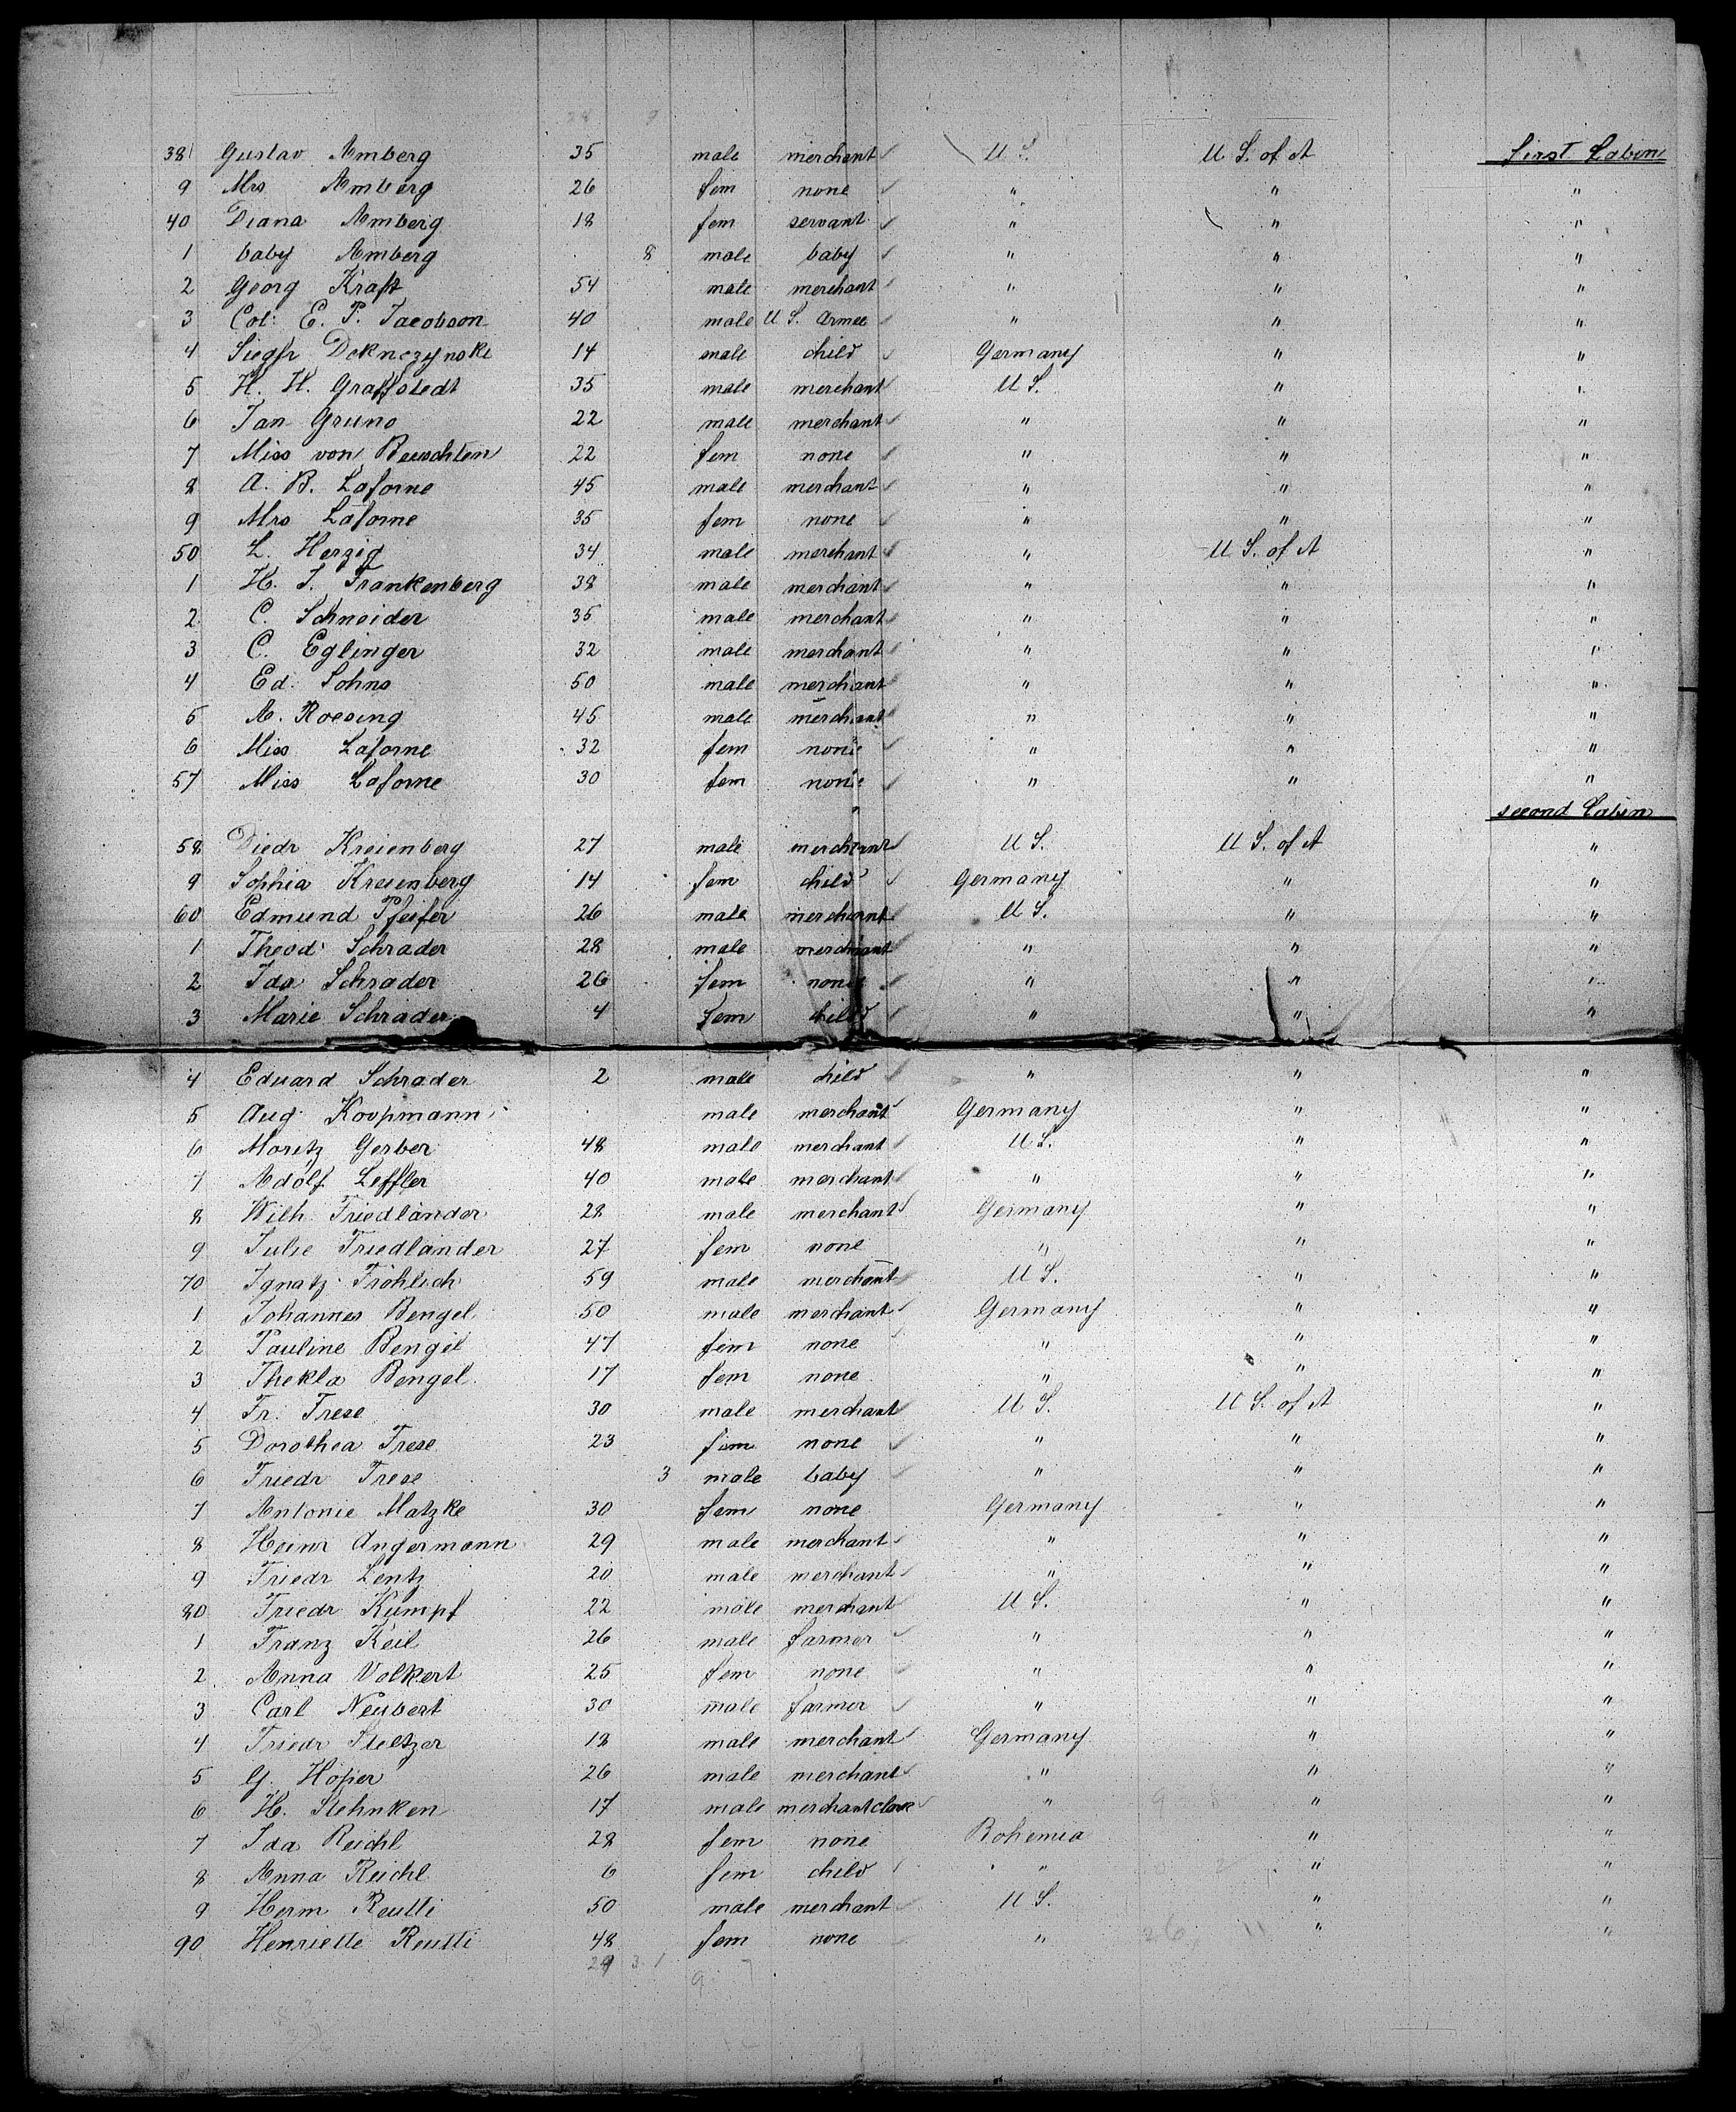 38 Gustav Amberg 35 male merchant U S. U S. of A first Cabin
9 Mrs Amberg 26 fem none " " "
40 Diana Amberg 18 fem servant " " "
1 baby Amberg 8 male baby " " "
2 Georg Kraft 54 male merchant " " "
3 Col: E. P. Jacobson 40 male U S. Armee " " "
4 Siegfr 14 male child Germany " "
5 H. H. Graffstedt 35 male merchant U S. " "
6 Jan Gruno 22 male merchant " " "
7 Miss von 22 fem none " " "
8 A. B. Laforne 45 male merchant " " "
9 Mrs Laforne 35 fem none " " "
50 L. Herzig 34 male merchant " U S. of A "
1 H. J. Frankenberg 38 male merchant " " "
2 C. Schneider 35 male merchant " " "
3 C. Eglinger 32 male merchant " " "
4 Ed. Sohns 50 male merchant " " "
5 A. Roesing 45 male merchant " " "
6 Miss Laforne 32 fem none " " "
57 Miss Laforne 30 fem none " " "
second Cabin
58 Diedr Kreienberg 27 male merchant U S. U S. of A "
9 Sophia Kreienberg 14 fem child Germany " "
60 Edmund Pfeifer 26 male merchant U S. " "
1 Theod: Schrader 28 male merchant " " "
2 Ida Schrader 26 fem none " " "
3 Marie Schrader 4 fem child " " "
4 Eduard Schrader 2 male child " " "
5 Aug. Koopmann male merchant Germany " "
6 Moritz Gerber 48 male merchant U S. " "
7 Adolf Leffler 40 male merchant " " "
8 Wilh. Friedländer 28 male merchant Germany " "
9 Julie Friedländer 27 fem none " " "
70 Ignatz Fröhlich 59 male merchant U S. " "
1 Johannes Bengel 50 male merchant Germany " "
2 Pauline Bengel 47 fem none " " "
3 Thekla Bengel 17 fem none " " "
4 Fr. Frese 30 male merchant U S. U S. of A "
5 Dorothea Frese 23 fem none " " "
6 Friedr Frese 3 male baby " " "
7 Antonie Matzke 30 fem none Germany " "
8 Heinr Angermann 29 male merchant " " "
9 Friedr Lentz 20 male merchant " " "
80 Friedr Kumpf 22 male merchant U S. " "
1 Franz Keil 26 male farmer " " "
2 Anna Volkert 25 fem none " " "
3 Carl Neubert 30 male farmer " " "
4 Friedr Steltzer 18 male merchant Germany " "
5 G. Höper 26 male merchant " " "
6 H. Stehnken 17 male merchant clerk " " "
7 Ida Reichl 28 fem none Bohemia " "
8 Anna Reichl 6 fem child " " "
9 Herm Reutti 50 male merchant U S. " "
90 Henriette Reutti 48 fem none " " "